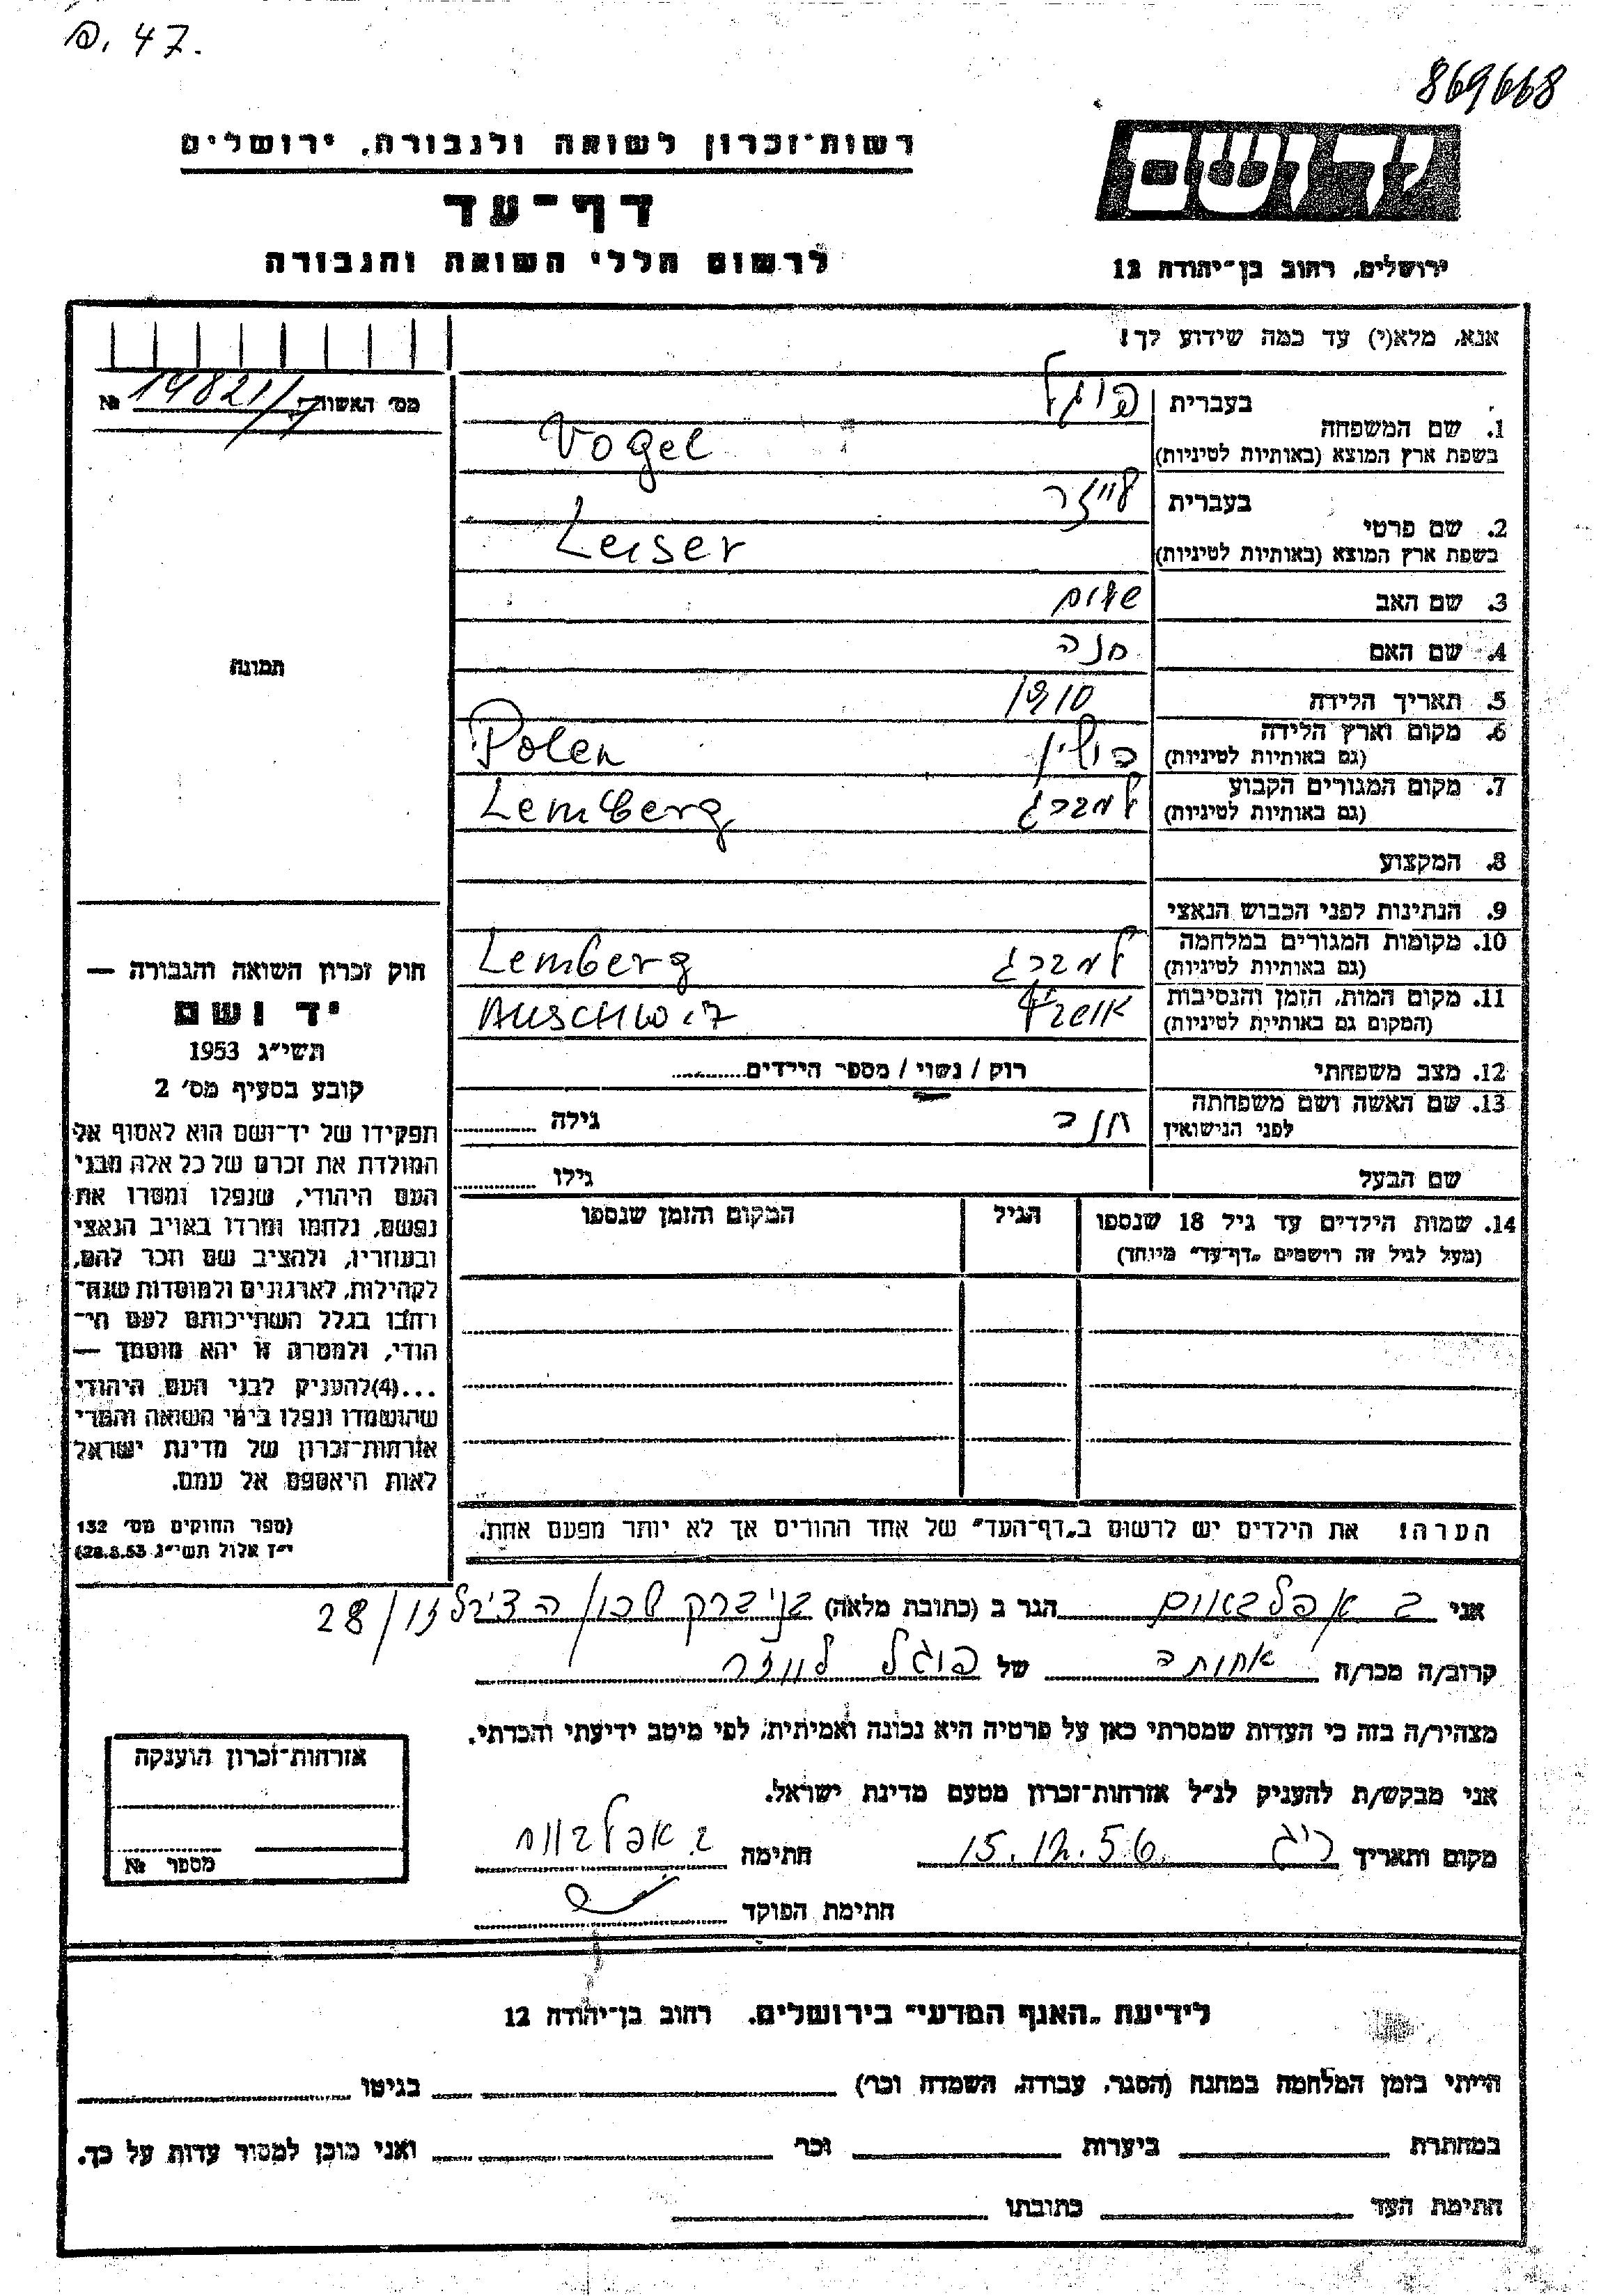 פ. 47.
869668
רשות־זכרון לשואה ולגבורה, ירושלים
דף־עד
לרשום חללי השואה והגבורה
ידושם
ירושלים, רחוב בן־יהודה 12
אנא, מלא(י) עד כמה שידוע לך!
מס׳ האשה № 19821/7
1. שם המשפחה בעברית פוגל
בשפת ארץ המוצא (באותיות לטיניות) Vogel
2. שם פרטי בעברית לייזר
בשפת ארץ המוצא (באותיות לטיניות) Leiser
3. שם האב שלום
4. שם האם חנה
תמונה
5. תאריך הלידה 1910
6. מקום וארץ הלידה
(גם באותיות לטיניות) פולין Polen
7. מקום המגורים הקבוע
(גם באותיות לטיניות) למברג Lemberg
8. המקצוע
9. הנתינות לפני הכבוש הנאצי
10. מקומות המגורים במלחמה
(גם באותיות לטיניות) למברג Lemberg
11. מקום המות, הזמן והנסיבות
(המקום גם באותיות לטיניות) Auschwiz
12. מצב משפחתי רוק / נשוי / מספר הילדים..........
13. שם האשה ושם משפחתה
לפני הנישואין חנה גילה ..........
שם הבעל גילו ..........
14. שמות הילדים עד גיל 18 שנספו
(מעל לגיל זה רושמים „דף־עד״ מיוחד)
הגיל
המקום והזמן שנספו
הערה! את הילדים יש לרשום ב„דף־העד״ של אחד ההורים אך לא יותר מפעם אחת.
חוק זכרון השואה והגבורה —
יד ושם
תשי״ג 1953
קובע בסעיף מס׳ 2
תפקידו של יד־ושם הוא לאסוף אל
המולדת את זכרם של כל אלה מבני
העם היהודי, שנפלו ומסרו את
נפשם, נלחמו ומרדו באויב הנאצי
ובעוזריו, ולהציב שם וזכר להם,
לקהילות, לארגונים ולמוסדות שנח־
רבו בגלל השתייכותם לעם הי־
הודי, ולמטרה זו יהא מוסמך —
...(4) להעניק לבני העם היהודי
שהושמדו ונפלו בימי השואה והמרי
אזרחות־זכרון של מדינת ישראל
לאות היאספם אל עמם.
(ספר החוקים מס׳ 132
י״ז אלול תשי״ג 28.8.53)
אני ב אפלבאום הגר ב (כתובת מלאה) בני ברק שכון ה 28/
קרוב/ה מכר/ה אחותה של פוגל לייזר
מצהיר/ה בזה כי העדות שמסרתי כאן על פרטיה היא נכונה ואמיתית, לפי מיטב ידיעתי והכרתי.
אני מבקש/ת להעניק לנ״ל אזרחות־זכרון מטעם מדינת ישראל.
מקום ותאריך 15.12.56 חתימה ב. אפלבאום
חתימת הפוקד
אזרחות־זכרון הוענקה
מספר №
לידיעת „האגף המדעי״ בירושלים. רחוב בן־יהודה 12
הייתי בזמן המלחמה במחנה (הסגר, עבודה, השמדה וכו׳) בגיטו
במחתרת ביערות וכו׳ ואני מוכן למסור עדות על כך.
חתימת העד כתובתו